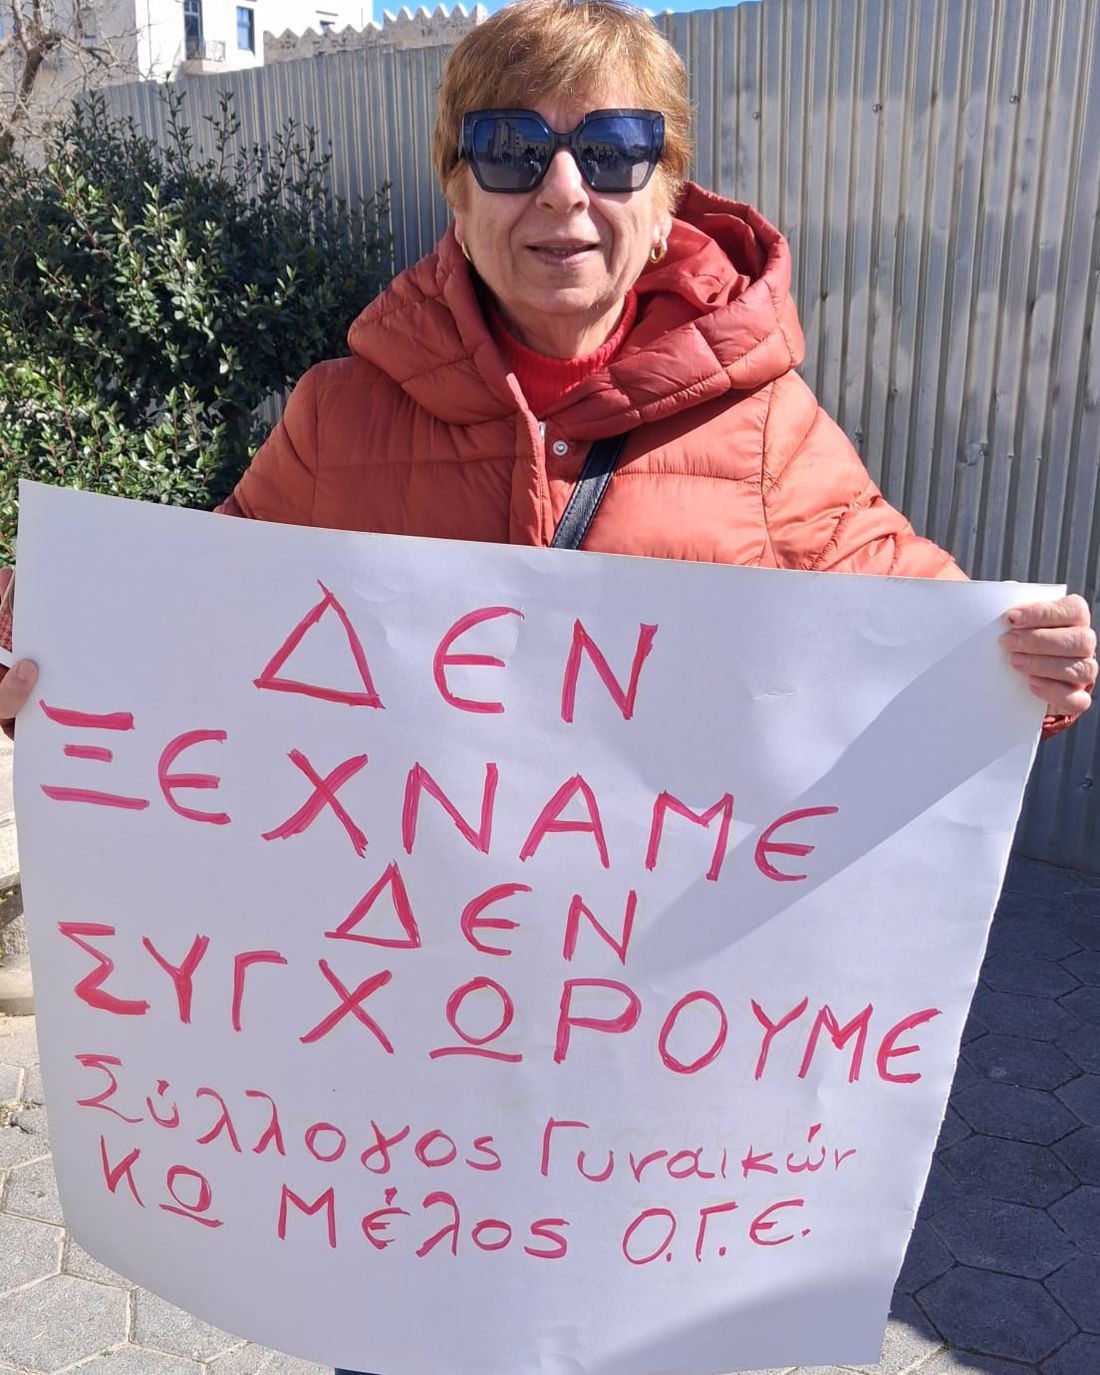 ΔΕΝ
ΞΕΧΝΑΜΕ
ΔΕΝ
ΣΥΓΧΩΡΟΥΜΕ
Σύλλογος Γυναικών
ΚΩ Μέλος Ο.Γ.Ε.